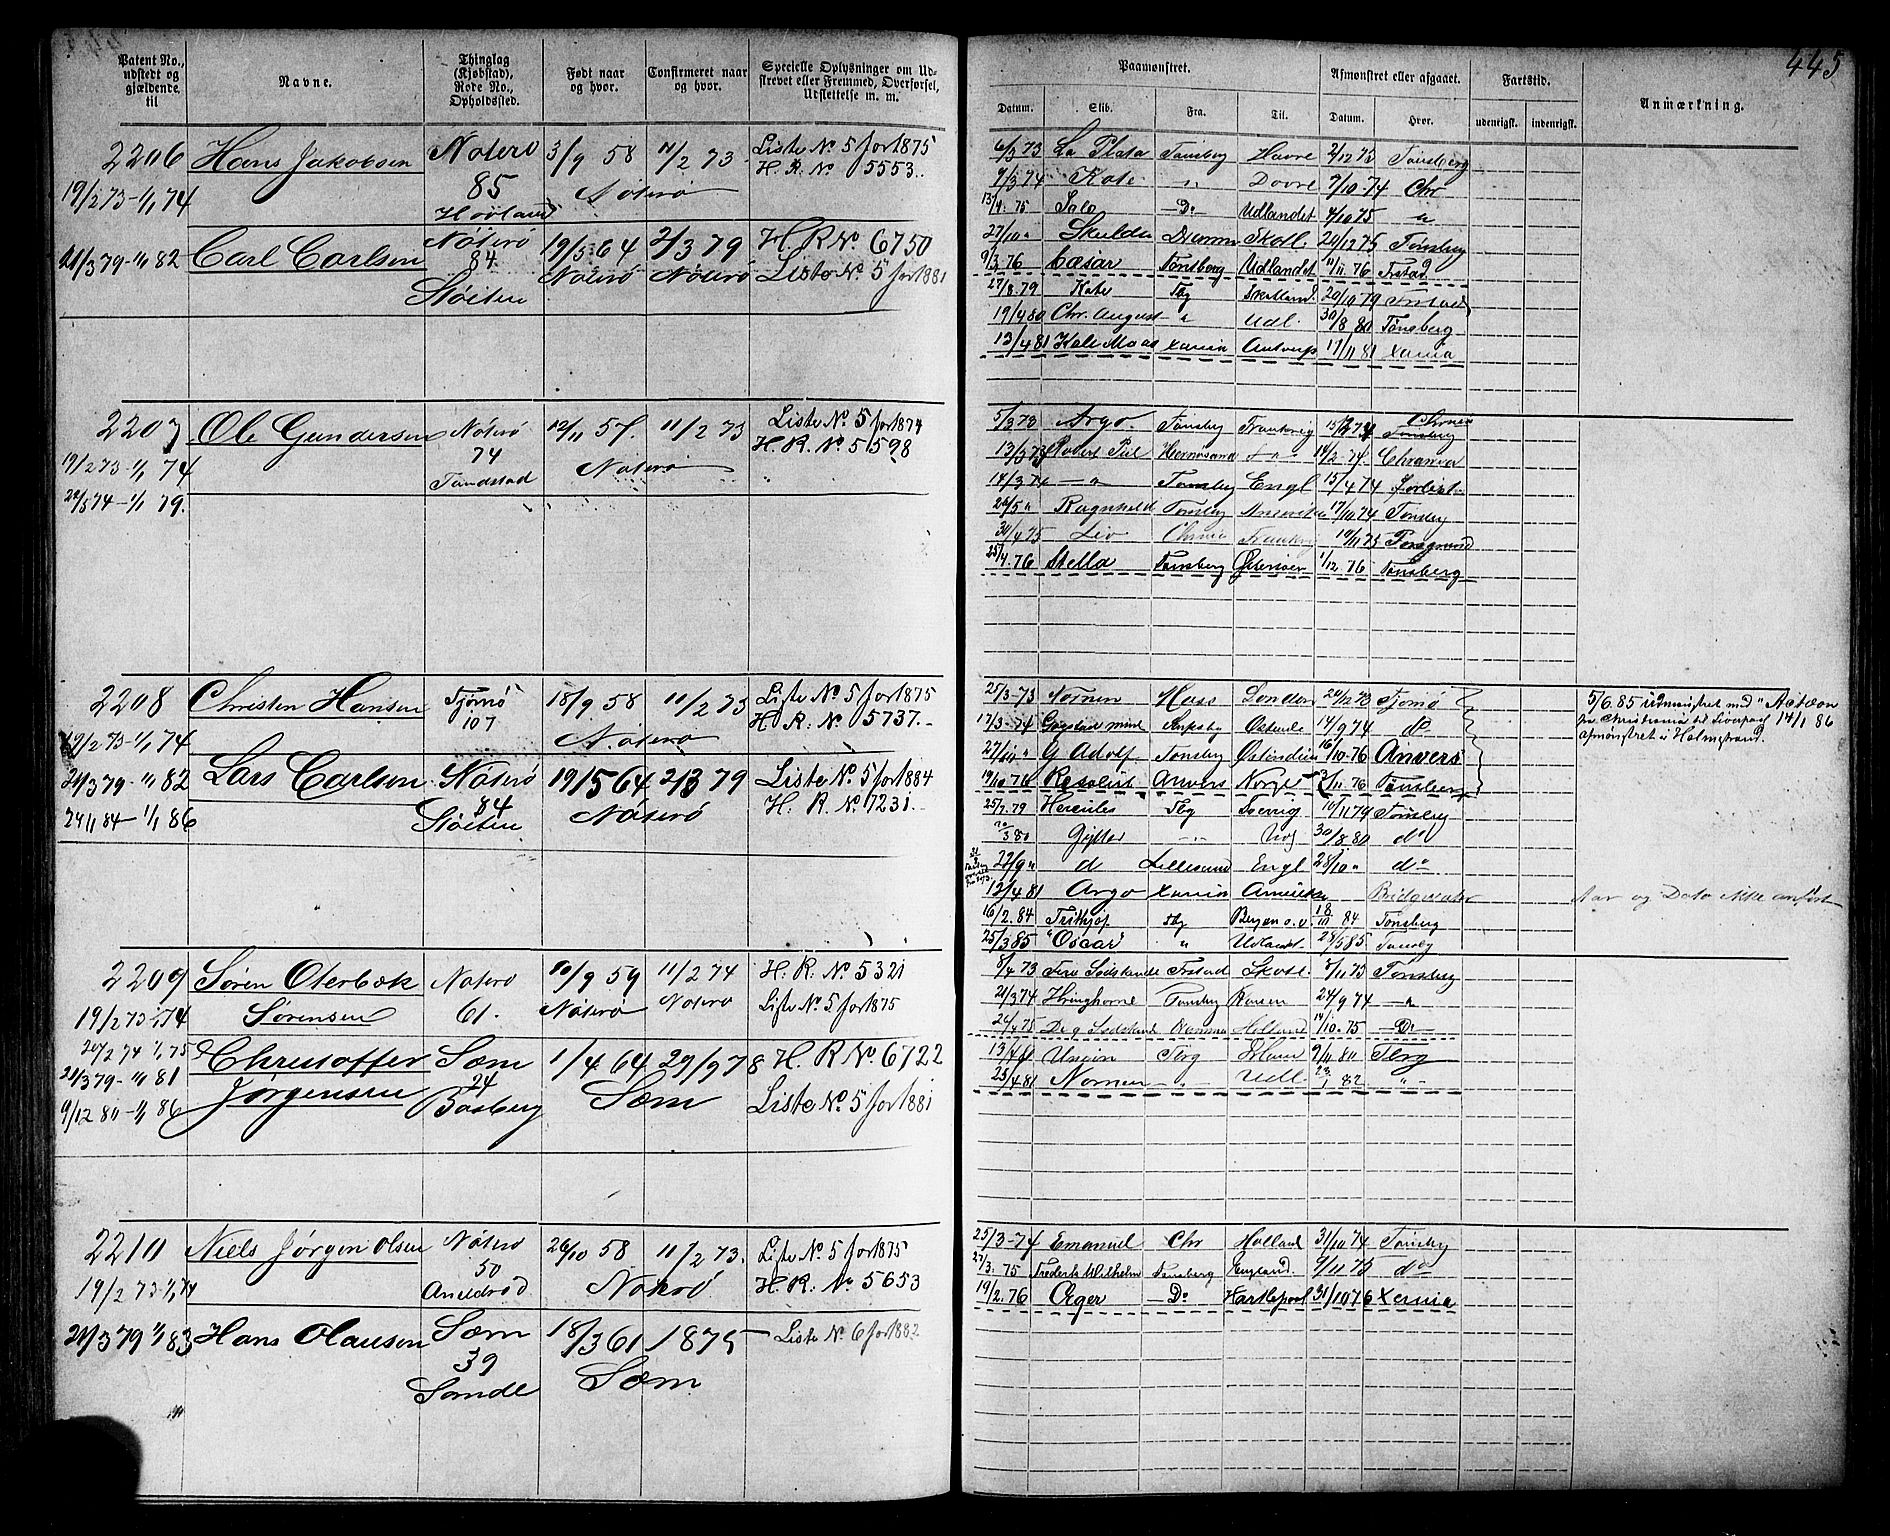 445
Patent No., udstedt og gjældende til
Navne.
Thinglag (Kjøbstad), Rode No., Opholdssted.
Født naar og hvor.
Confirmeret naar og hvor.
Specielle Oplysninger om Udskrevet eller Fremmed, Overførsel, Udslettelse m. m.
2206 Hans Jakobsen Nøterø 3/9 58 11/2 73 Liste No 5 for 1875
19/2 73-1/1 74 85 Nøterø H. R. No 5553.
21/3 79-1/1 82 Carl Carlsen Nøterø 19/5 64 2/3 79 H. R No 6750
84 Nøterø Nøterø Liste No. 5 for 1881
Støiten
2207 Ole Gundersen Nøterø 12/11 57. 11/2 73 Liste No 5 for 1874
19/2 73-1/1 74 74 Nøterø H. R. No 5598
22/5 74-1/1 79.
2208 Christen Hansen Tjømø 18/9 58 11/2 73 Liste No 5 for 1875
19/2 73-1/1 74 107 Nøterø H. R. No 5737.
21/3 79-1/1 82 Lars Carlsen Nøterø 19/5 64 2/3 79 Liste No 5 for 1884
84 Nøterø H. R. No 7231.
24/11 84-1/1 86 Støiten
2209 Søren Oterbæk Nøterø 10/9 59 11/2 74 H. R. No 5321
19/2 73-1/1 74 Sørensen 61. Nøterø Nøterø Liste No. 5 for 1875
20/2 74 1/1 75 Christoffer Sæm 1/4 64 29/9 78 H. R No. 6722
21/3 79-1/1 81 Jørgensen 24 Sæm
9/12 80-1/1 86 Basberg Liste No. 5 for 1881
2210 Niels Jørgen Olsen Nøterø 26/10 58 11/2 73. Liste No. 5 for 1875
19/2 73-1/1 74 50 Nøterø H. R. No 5653
21/3 79 1/1 83 Hans Olausen Sæm 18/3 61 1875 Liste No. 6 for 1882
39 Sæm
Sande
Paamønstret.
Afmønstret eller afgaaet.
Fartstid.
Anmærkning.
Datum. Skib. Fra. Til. Datum. Hvor. udenrigsk. indenrigsk.
6/3 73 La Plata Tønsberg Havre 2/12 73 Tønsberg
9/3 74 Kate " Dovre 7/10 74 Chr
13/4. 75 Salo -Do Udlandet 4/10 75 "
27/10 " Skulda Dramme Skotl. 20/12 75 Tønsberg
9/3. 76 Cæsar Tønsberg Udlandet 11/11. 76 Frstad
27/8. 79 Kate Tbg Skotland. 20/10 79
19/4 80 Chr. August " Udl. 30/8 80 Tønsberg
13/4 81 Xania Antverp 17/11 81 Xania
5/3 73 Argo Tønsberg Frankrig Tønsberg
13/5 73 Hernøsand 14/2 74.
14/3 74 -" Tønsberg Engl 15/4 74
26/5 " Ragnhild Tønsberg 17/10 74 Tønsberg
30/4 75 Liv Chrnia Frankrig 10/11 75 Porsgrund
25/4. 76 Stella Tønsberg 1/12. 76 Tønsberg
25/3-73 Nornen London Tjømø
17/3-74 Ostende 14/9 74 do
27/11 " G. Adolf Tønsberg Ostindien 16/10-76 Anvers
19/10 76 Resolut Anvers Norge 3/11 76 Tønsberg
25/7. 79 Hercules Tbg Sverrig 10/11 79 Tønsberg
20/3 80 " 30/8 80 do
22/9 " d Lillesand Engl 28/10 " do
12/4 81 Argo Xania Amerika Bridgewater
16/2. 84 Frithjof Tbg Bergen o. v. 84 Tønsberg
25/3 85 "Oscar" " Udlandet 28/5 85 Tønsberg
5/6. 85 udmønstret med "Actæon
fra Christiania til Liverpool 14/1 86
afmønstret i Holmstrand.
Aar og Dato ikke anført
8/4 73 Frstad Skotl. 8/11 73 Tønsberg
21/3 74 Hringhorne Tønsberg 24/9 74 -"
Holland 14/10. 75 -Do
13/4 Union Tbrg 9/11 80 Tbrg
25/4 81 Nornen -" Udl. 23/1 82 "
25/3-74 Emanuel Chr Holland 31/10 74 Tønsberg
27/3. 75 Frederk Wilhelm Tønsberg England. 9/11 75 do
19/2. 76 Æger -Do Hartlepool 31/10 76 Xania